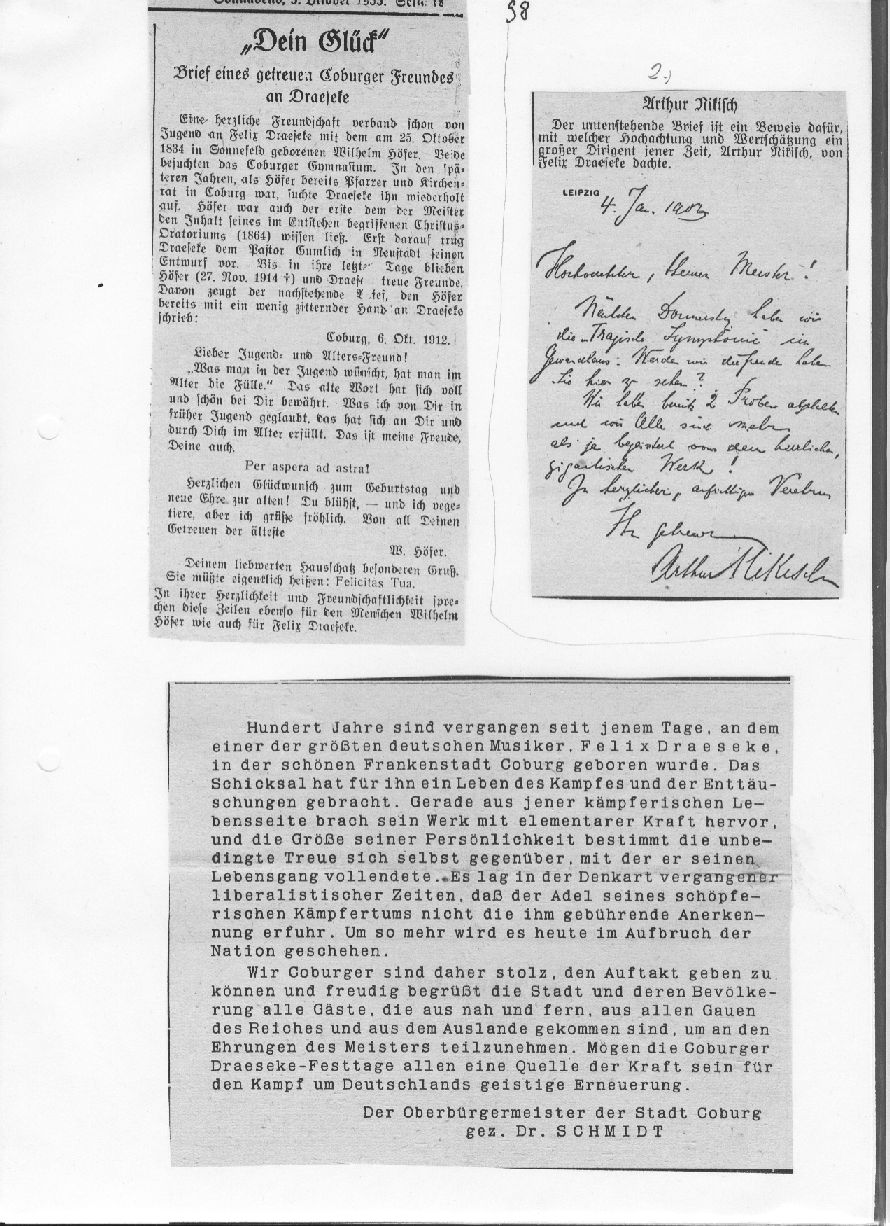 Sonnabend, 5. Oktober 1935. Seite 18
„Dein Glück“
Brief eines getreuen Coburger Freundes
an Draeseke
Eine herzliche Freundschaft verband schon von
Jugend an Felix Draeseke mit dem am 25. Oktober
1834 in Sonnefeld geborenen Wilhelm Höfer. Beide
besuchten das Coburger Gymnasium. In den spä-
teren Jahren, als Höfer bereits Pfarrer und Kirchen-
rat in Coburg war, suchte Draeseke ihn wiederholt
auf. Höfer war auch der erste dem der Meister
den Inhalt seines im Entstehen begriffenen Christus-
Oratoriums (1864) wissen ließ. Erst darauf trug
Draeseke dem Pastor Gumlich in Neustadt seinen
Entwurf vor. Bis in ihre letzten Tage blieben
Höfer (27. Nov. 1914 †) und Draese treue Freunde.
Davon zeugt der nachstehende Brief, den Höfer
bereits mit ein wenig zitternder Hand an Draeseke
schrieb:
Coburg, 6. Okt. 1912.
Lieber Jugend- und Alters-Freund!
„Was man in der Jugend wünscht, hat man im
Alter die Fülle.“ Das alte Wort hat sich voll
und schön bei Dir bewährt. Was ich von Dir in
früher Jugend geglaubt, das hat sich an Dir und
durch Dich im Alter erfüllt. Das ist meine Freude,
Deine auch.
Per aspera ad astra!
Herzlichen Glückwunsch zum Geburtstag und
neue Ehre zur alten! Du blühst, — und ich vege-
tiere, aber ich grüße fröhlich. Von all Deinen
Getreuen der älteste
W. Höfer.
Deinem liebwerten Hausschatz besonderen Gruß.
Sie müßte eigentlich heißen: Felicitas Tua.
In ihrer Herzlichkeit und Freundschaftlichkeit spre-
chen diese Zeilen ebenso für den Menschen Wilhelm
Höfer wie auch für Felix Draeseke.
98
2.)
Arthur Nikisch
Der untenstehende Brief ist ein Beweis dafür,
mit welcher Hochachtung und Wertschätzung ein
großer Dirigent jener Zeit, Arthur Nikisch, von
Felix Draeseke dachte.
LEIPZIG
4. Ja.
Hochverehrter, theurer Meister!
Nächsten Donnerstag haben wir
die „Tragische Symphonie“ im
Gewandhaus. Werden wir die Freude haben
Sie hier zu sehen?
Wir haben bereits 2 Proben abgehalten
und wir Alle sind mehr
als je begeistert von dem herrlichen,
gigantischen Werk!
In herzlicher, aufrichtiger Verehrung
Ihr getreuer
Arthur Nikisch
Hundert Jahre sind vergangen seit jenem Tage, an dem
einer der größten deutschen Musiker, Felix Draeseke,
in der schönen Frankenstadt Coburg geboren wurde. Das
Schicksal hat für ihn ein Leben des Kampfes und der Enttäu-
schungen gebracht. Gerade aus jener kämpferischen Le-
bensseite brach sein Werk mit elementarer Kraft hervor,
und die Größe seiner Persönlichkeit bestimmt die unbe-
dingte Treue sich selbst gegenüber, mit der er seinen
Lebensgang vollendete. Es lag in der Denkart vergangener
liberalistischer Zeiten, daß der Adel seines schöpfe-
rischen Kämpfertums nicht die ihm gebührende Anerken-
nung erfuhr. Um so mehr wird es heute im Aufbruch der
Nation geschehen.
Wir Coburger sind daher stolz, den Auftakt geben zu
können und freudig begrüßt die Stadt und deren Bevölke-
rung alle Gäste, die aus nah und fern, aus allen Gauen
des Reiches und aus dem Auslande gekommen sind, um an den
Ehrungen des Meisters teilzunehmen. Mögen die Coburger
Draeseke-Festtage allen eine Quelle der Kraft sein für
den Kampf um Deutschlands geistige Erneuerung.
Der Oberbürgermeister der Stadt Coburg
gez. Dr. SCHMIDT